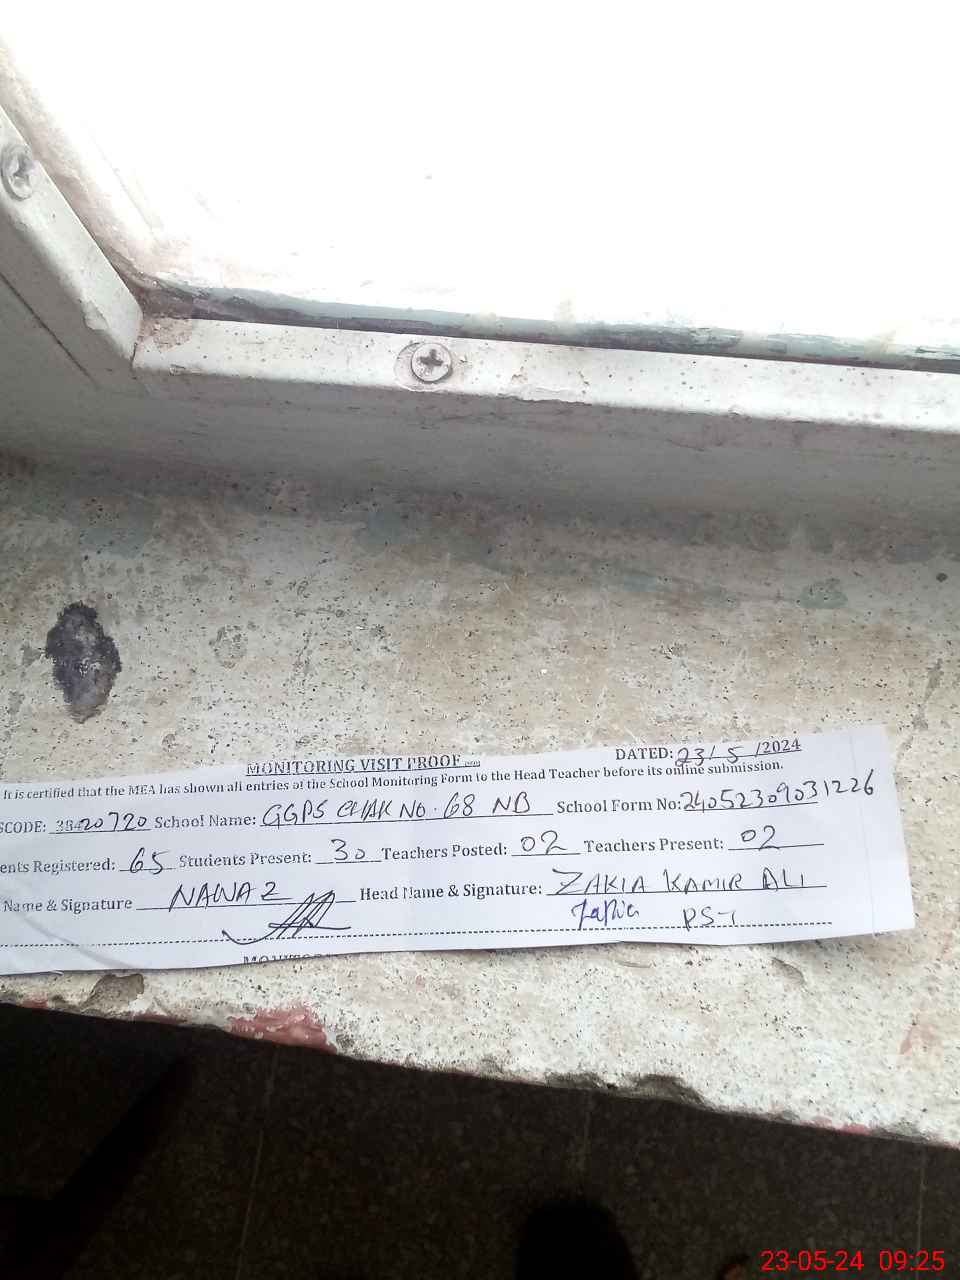 MONITORING VISIT PROOF
DATED: 23/5/2024
It is certified that the MEA has shown all entries of the School Monitoring Form to the Head Teacher before its online submission.
SCODE: 38420720 School Name: GGPS CHAK NO. 68 NB School Form No: 24052309031226
ents Registered: 65 Students Present: 30 Teachers Posted: 02 Teachers Present: 02
Name & Signature NAWAZ Head Name & Signature: ZAKIA KAMIR ALI
PST
23-05-24 09:25